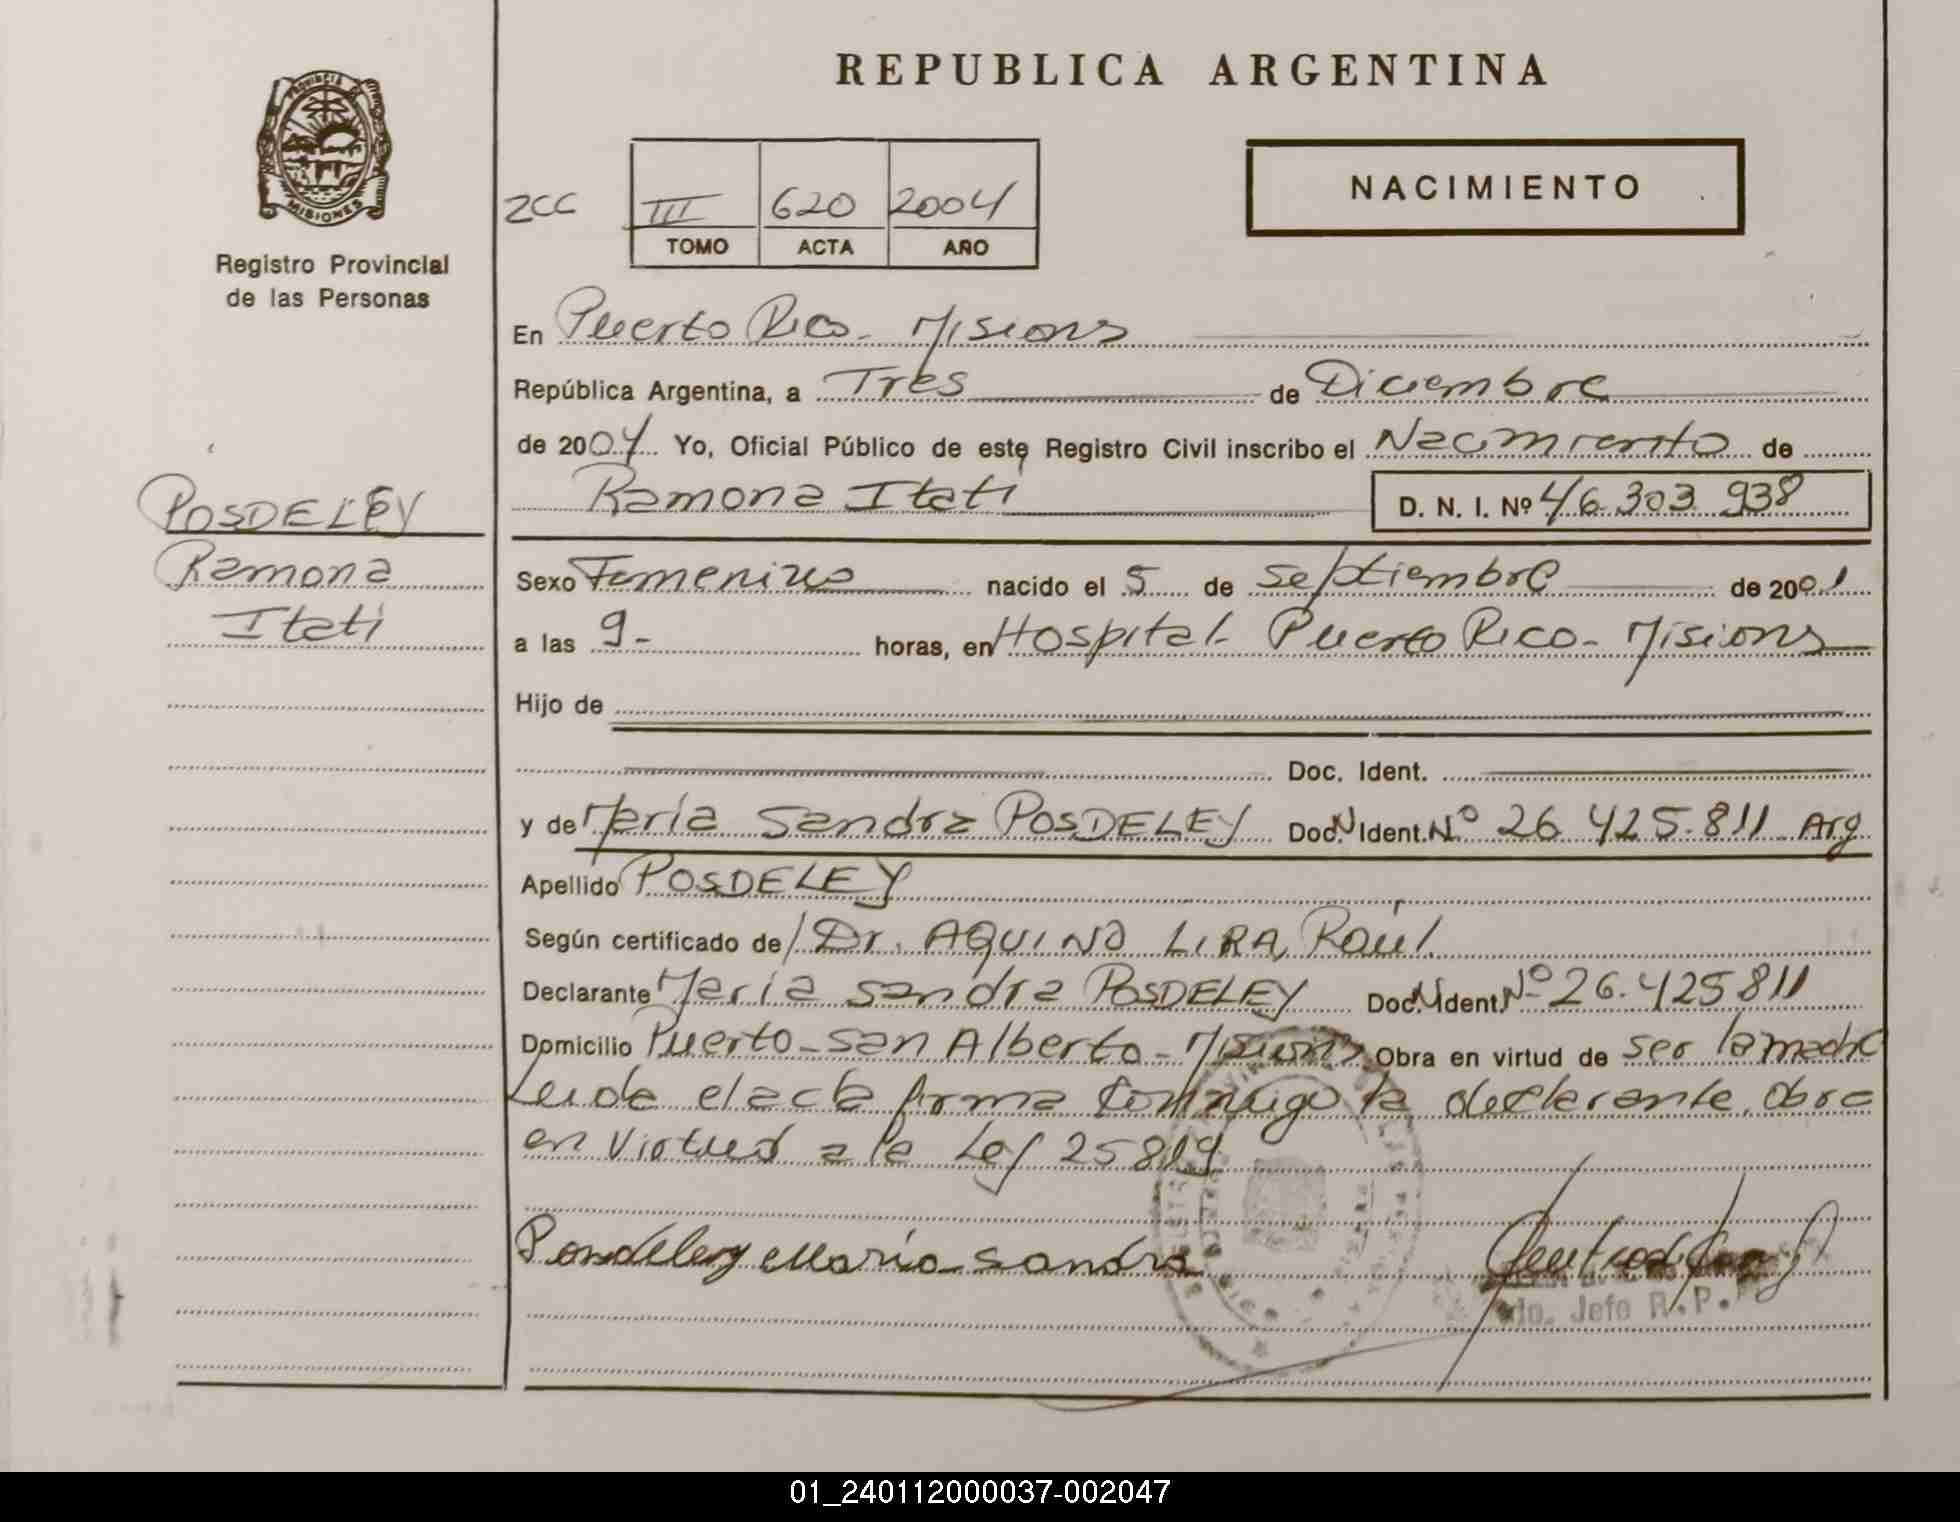 REPUBLICA ARGENTINA
PROVINCIA DE
MISIONES
Registro Provincial
de las Personas
NACIMIENTO
200 III 620 2004
TOMO ACTA AÑO
En Puerto Rico - Misiones
República Argentina, a Tres de Diciembre
de 2004 Yo, Oficial Público de este Registro Civil inscribo el Nacimiento de
Ramona Itati D. N. I. Nº 46.303.938
POSDELEY
Ramona
Itati
Sexo Femenino nacido el 5 de Septiembre de 2001
a las 9- horas, en Hospital Puerto Rico - Misiones
Hijo de
Doc. Ident.
y de María Sandra POSDELEY Doc. Ident. Nº 26.425.811 Arg
Apellido POSDELEY
Según certificado de / Dr. AQUINO LIRA, Raúl.
Declarante María Sandra POSDELEY Doc. Ident. Nº 26.425811
Domicilio Puerto San Alberto - Misiones Obra en virtud de ser la madre
Leida el acta firma conmigo la declarante, obra
en virtud a la Ley 25819
Posdeley María Sandra
Jefe R.P.
01_240112000037-002047